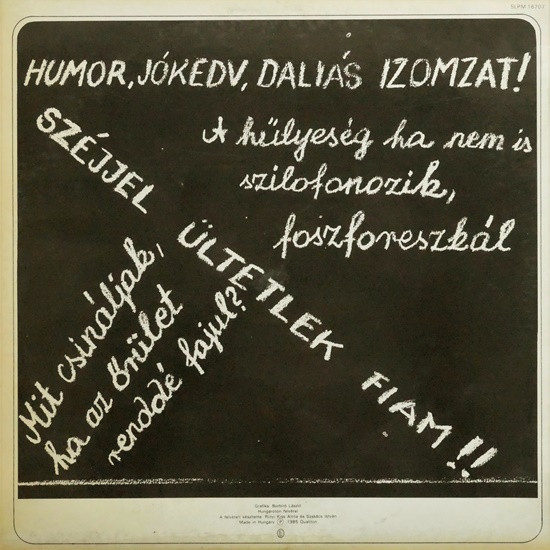 SLPM 16707
HUMOR, JÓKEDV, DALIÁS IZOMZAT!
SZÉJJEL ÜLTETLEK FIAM!!
A hülyeség ha nem is
szilofonozik,
foszforeszkál
Mit csináljak,
ha az őrület
renddé fajul?
Grafika: Bortnik László
Hungaroton felvétel
A felvételt készítette: Attila és István
Made in Hungary Ⓟ 1985. Qualiton